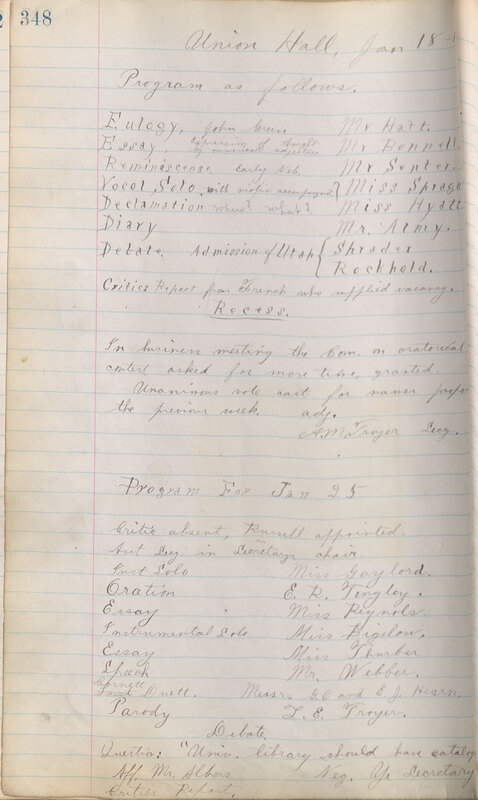 348
Union Hall, Jan 18
Program as follows.
Eulogy, John Green Mr Hatt.
Essay, Expression thought Mr Bonnell.
by movement
Reminiscense. Early Neb. Mr Senter.
Vocol Solo. with violin Miss Sprag
Declamation when? what? Miss Hyatt.
Diary Mr. Almy.
Debate. Admission of Utah { Shrader
Rockhold.
Critics Report from French who supplied vacancy.
Recess.
In business meeting the Com. on oratorical
contest asked for more time, granted.
Unaninous vote cast for names
the previous week. adj.
A.M. Troyer Secy.
Program For Jan 25
Critic absent, Russell appointed.
Secy. in Secretarys chair.
Inst Solo Miss Gaylord.
Oration E. R. Tingley.
Essay Miss Reynols.
Instrumental Solo Miss Bigelow.
Essay Miss Thurber
Speech Mr. Webber.
Cornett
Duett. Messrs GO and E J. Hearn.
Parody L. E. Troyer.
Debate.
Question: "Univ. library should have catalog
Aff. Mr. Albers Neg. Ye Secretary
Critics Report.